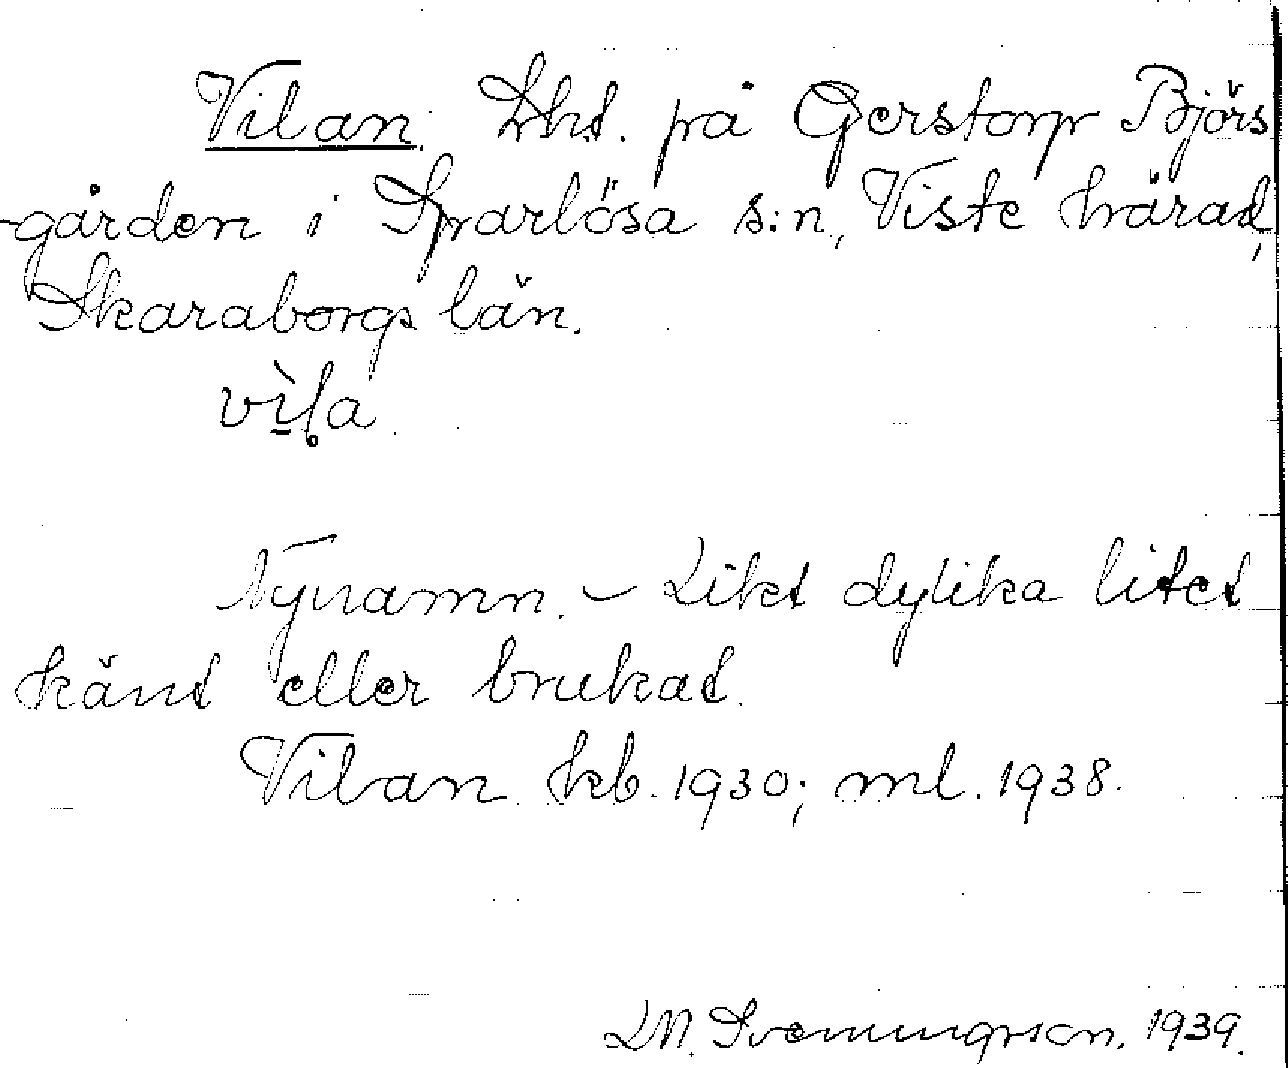 Vilan. Lht. på Gerstorp Björs
-gården i Sparlösa s:n, Viste härad,
Skaraborgs län.
vìla
Nynamn. – Likt dylika litet
känt eller brukat.
Vilan kb. 1930; ml. 1938.
1939.